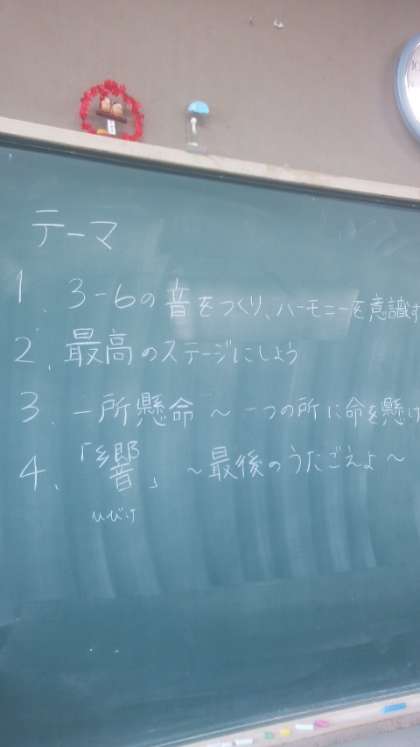 テーマ
1、3-6の音をつくり、ハーモニーを意識す
2、最高のステージにしよう
3、一所懸命～一つの所に命を懸け
4、「響」～最後のうたごえよ～
ひびけ